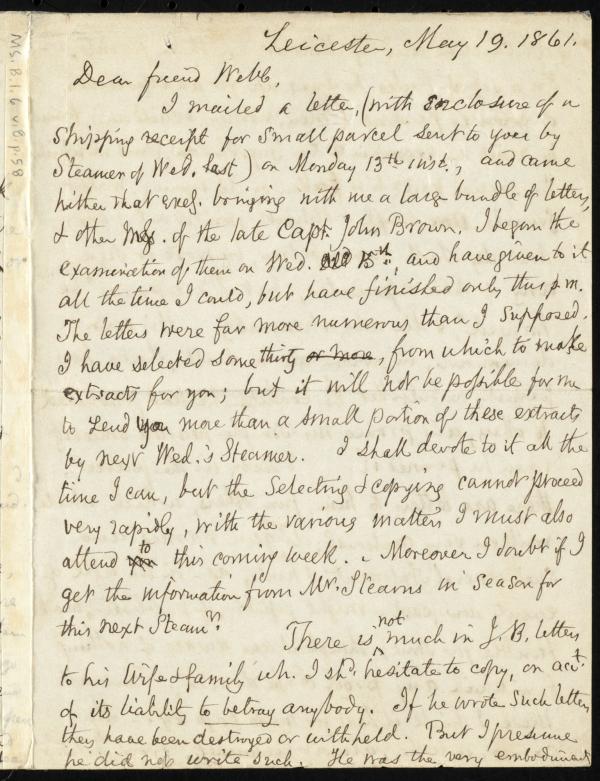 Leicester, May 19. 1861.
Dear friend Webb,
I mailed a letter, (with enclosure of a
shipping receipt for small parcel sent to you by
Steamer of Wed. last) on Monday 13th inst., and came
hither that eveg. bringing with me a large bundle of letters,
& other Mss. of the late Capt. John Brown. I began the
examination of them on Wed. 15th, and have given to it
all the time I could, but have finished only this p.m.
The letters were far more numerous than I supposed.
I have selected some thirty or more, from which to make
extracts for you; but it will not be possible for me
to send you more than a small portion of these extracts
by next Wed.'s Steamer. I shall devote to it all the
time I can, but the selecting & copying cannot proceed
very rapidly, with the various matters I must also
attend to this coming week. Moreover I doubt if I
get the information from Mr. Stearns in season for
this next Steamr.
There is not much in J.B. letters
to his Wife & family wh. I shd. hesitate to copy, on acct.
of its liability to betray anybody. If he wrote such letters
they have been destroyed or withheld. But I presume
he did not write such. He was the very embodiment
Ms. B.1.6 v8 p.58